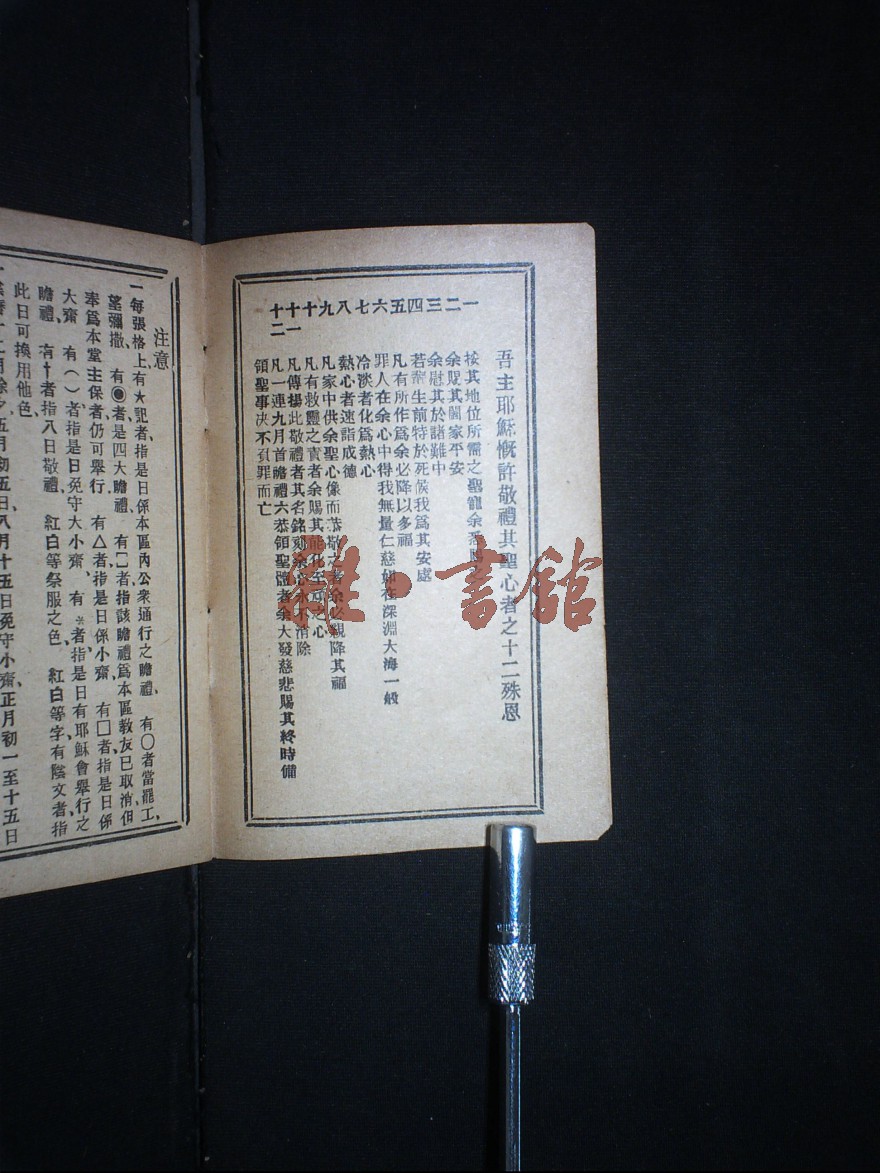 吾主耶穌慨許敬禮其聖心者之十二殊恩
一 按其地位所需之聖寵余
二 余賜其闔家平安
三 余慰其於諸難中
四 若輩生前特於死候我爲其安處
五 凡有所作爲余必降以多福
六 罪人在余心中得我無量仁慈如在深淵大海一般
七 冷淡者化爲熱心
八 熱心者速詣成德
九 凡家中供余聖心像而恭敬之者余必親降其福
十 凡有救靈之責者余賜其能化至頑之心
十一 凡傳揚此敬禮者其名銘刻余心永不消除
十二 凡一連九月首瞻禮六恭領聖體者余大發慈悲賜其終時備
領聖事决不負罪而亡
雜·書館
注意
一每張格上有★記者、指是日係本區內公衆通行之瞻禮、有〇者當罷工、
望彌撒、有◉者是四大瞻禮、有〔〕者指該瞻禮爲本區教友已取消、但
奉爲本堂主保者仍可舉行、有△者指是日係小齋、有□者指是日係
大齋、有（）者指是日免守大小齋、有※者指是日有耶穌會舉行之
瞻禮、有†者指八日敬禮、紅白等祭服之色、紅白等字有陰文者指
此日可換用他色、
五月初五日八月十五日免守小齋、正月初一至十五日